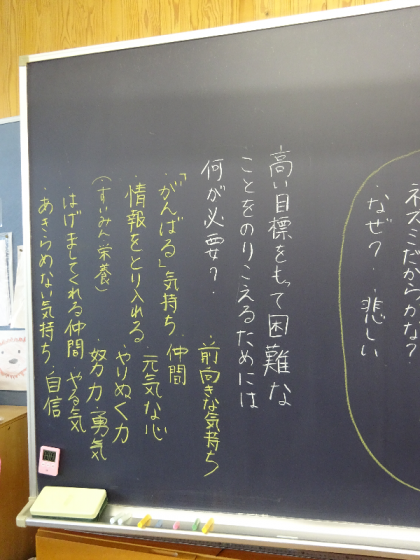 ネズミだからかな?
なぜ? 悲しい
高い目標をもって困難な
ことをのりこえるためには
何が必要?
・前向きな気持ち
・「がんばる」気持ち・仲間
・情報をとり入れる・元気な心
(すいみん・栄養)・やりぬく力
・努力・勇気
・はげましてくれる仲間・やる気
・あきらめない気持ち・自信